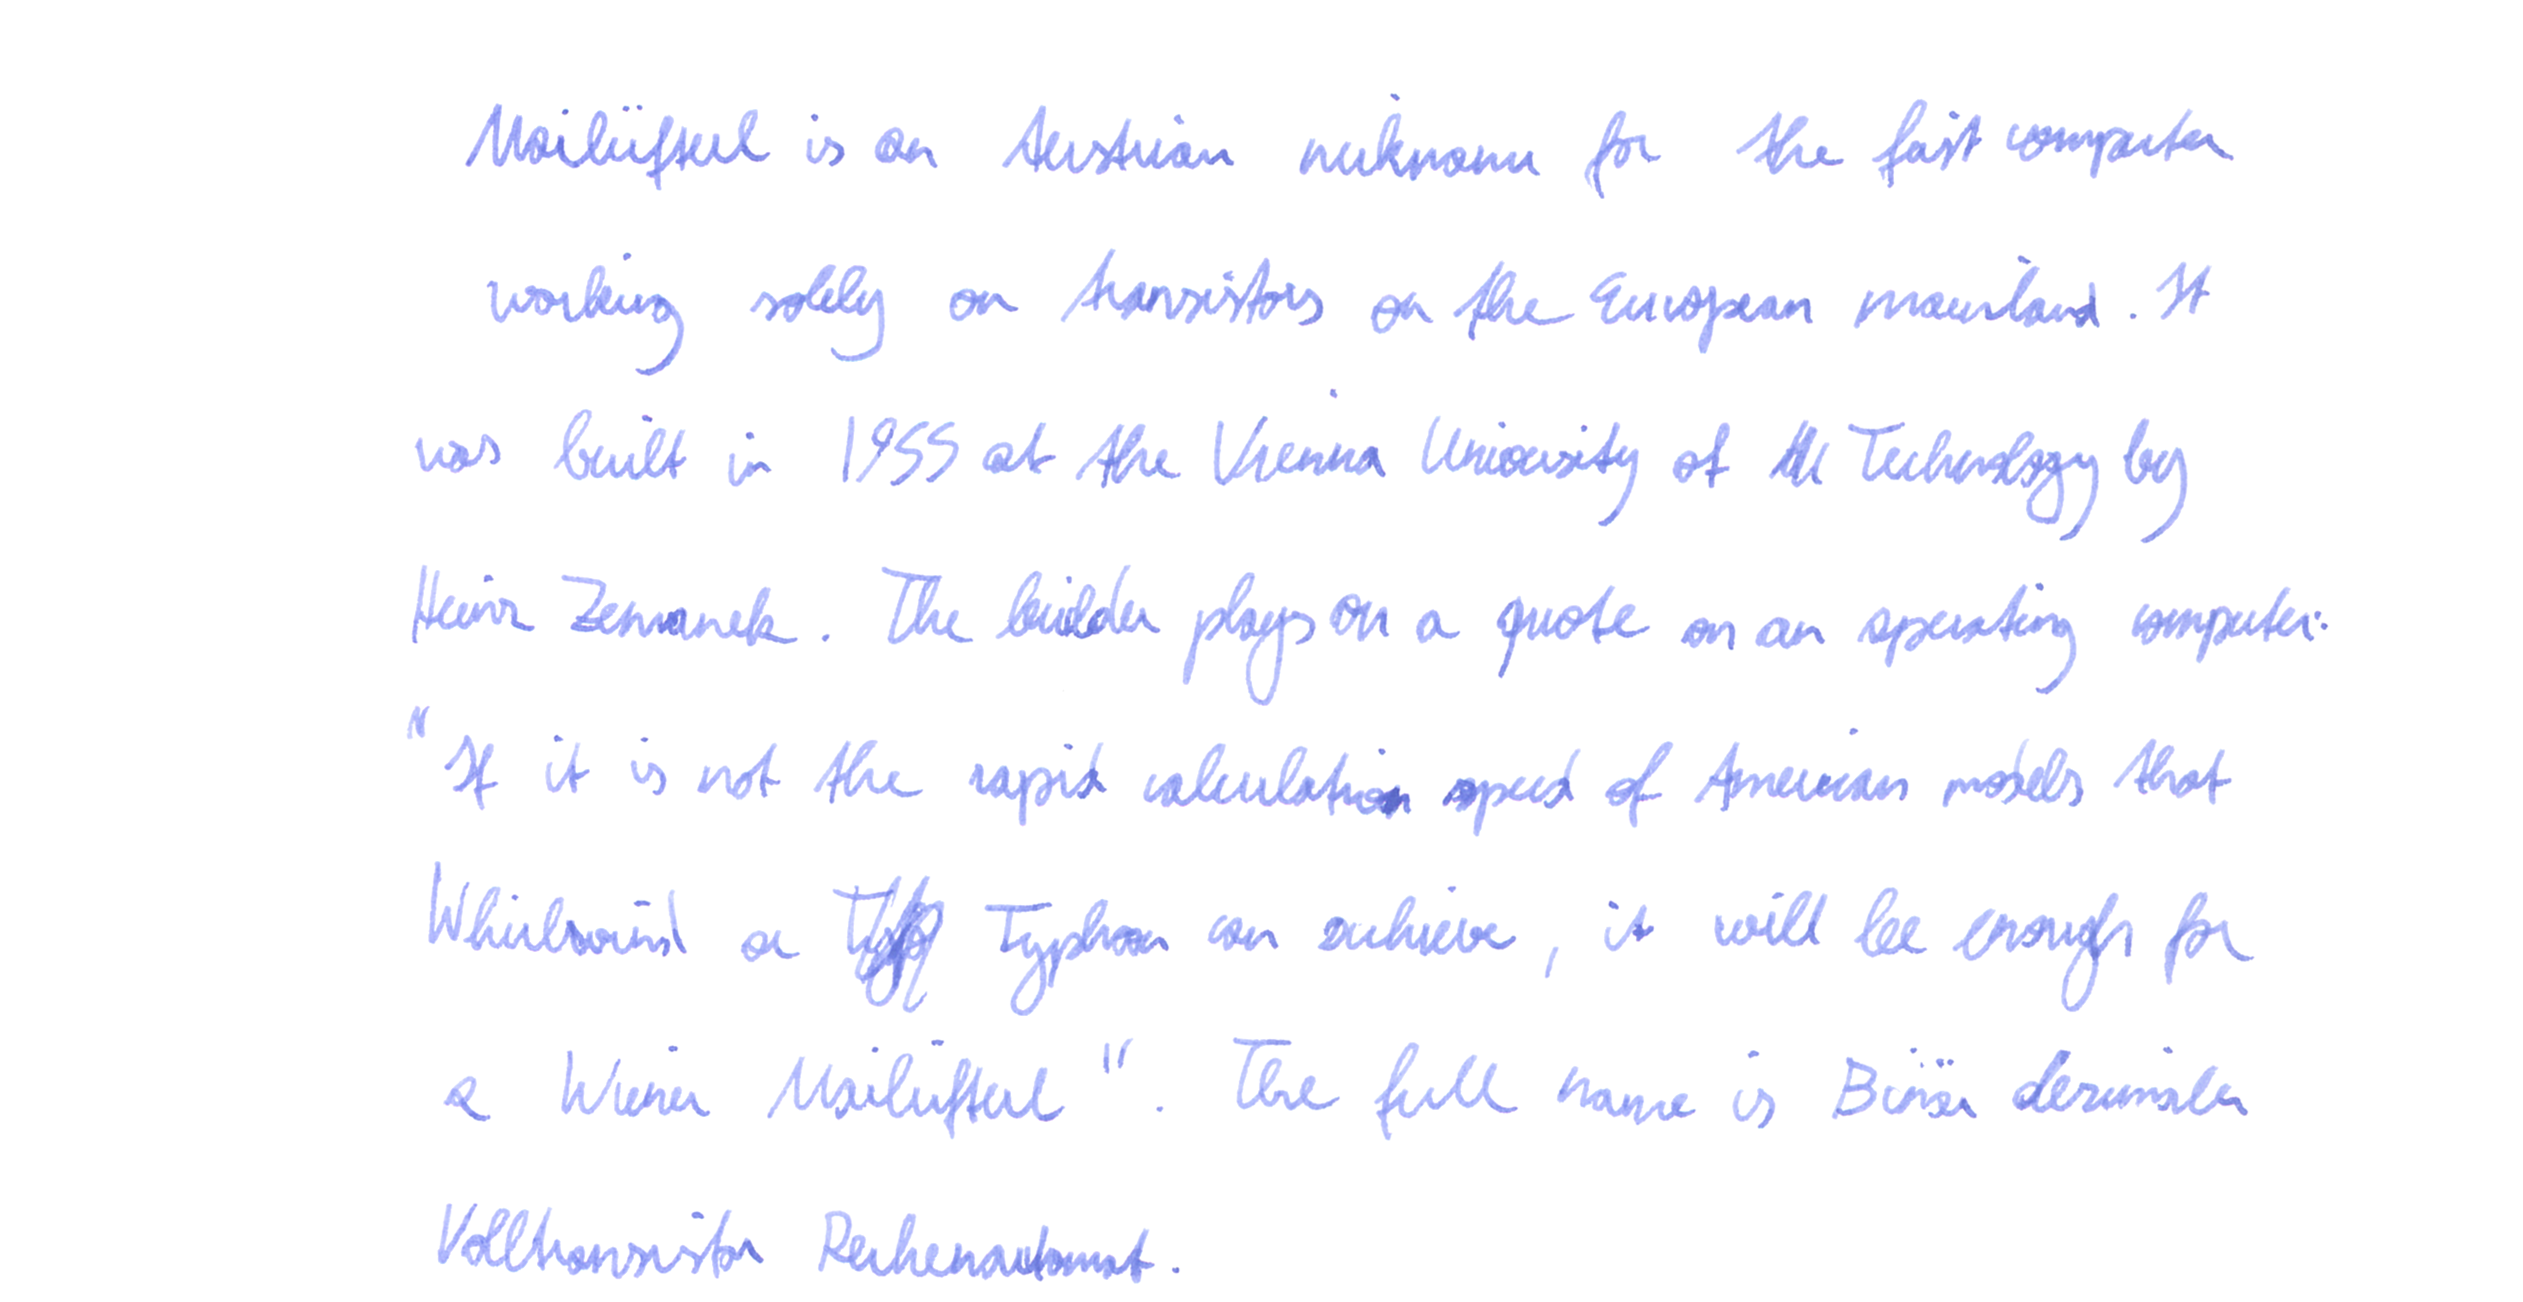 Mailüfterl is an Austrian nickname for the first computer
working solely on transistors on the European mainland. It
was built in 1955 at the Vienna University of Technology by
Heinz Zemanek. The builder plays on a quote on an operating computer:
"If it is not the rapid calculation speed of American models that
Whirlwind or Typhoon can achieve, it will be enough for
a Wiener Mailüfterl". The full name is Binär dezimaler
Volltransistor Rechenautomat.